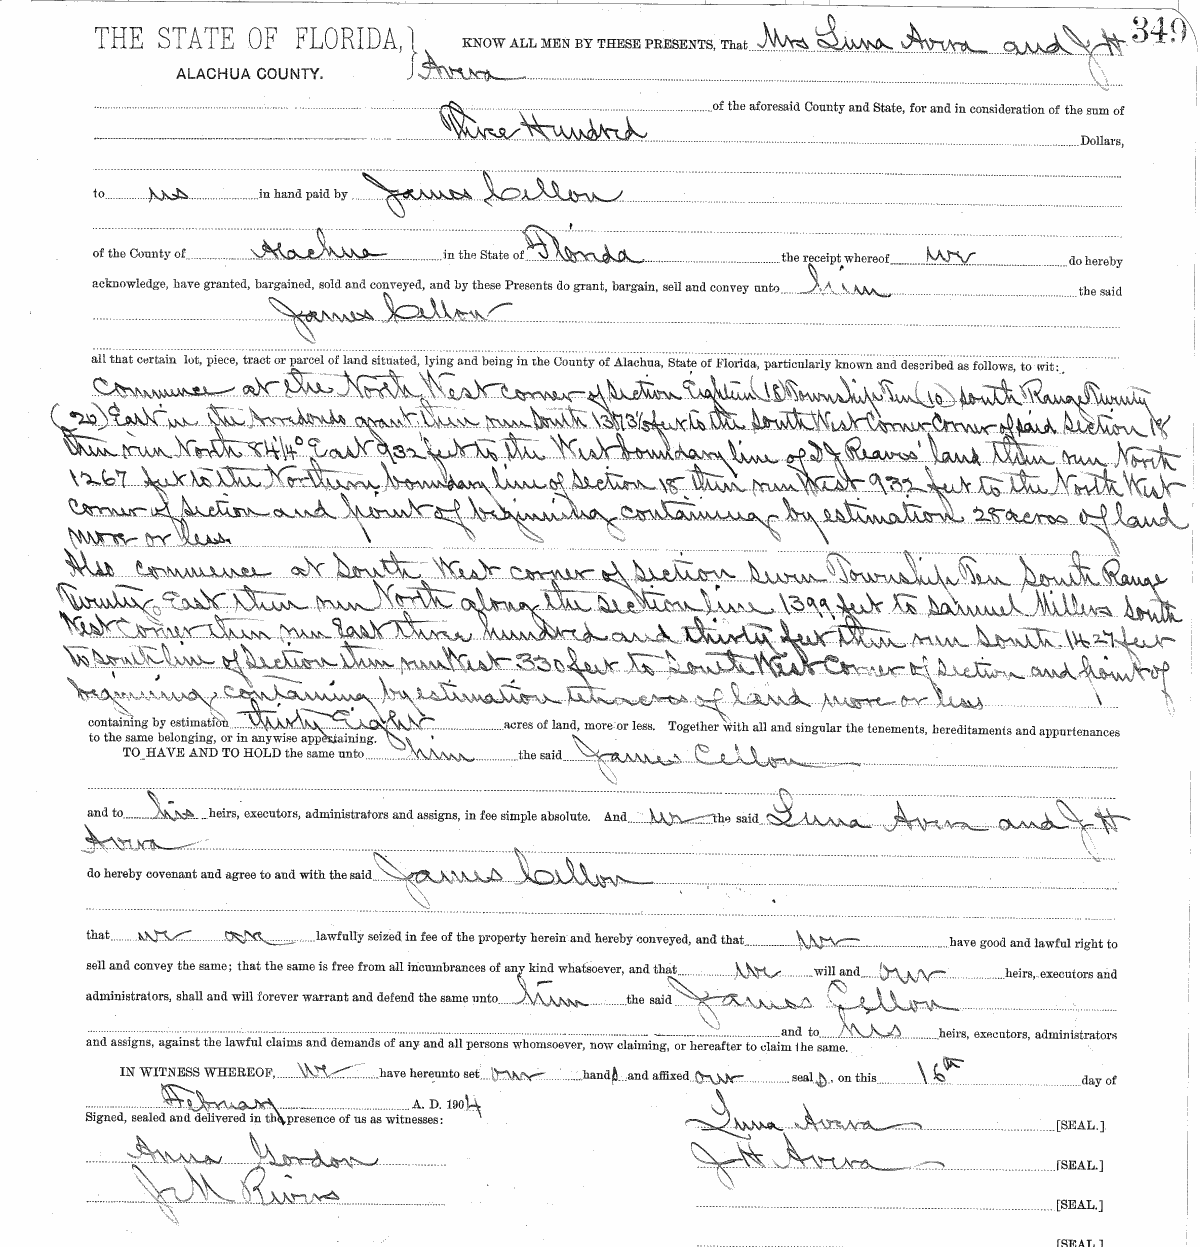 349
THE STATE OF FLORIDA,} KNOW ALL MEN BY THESE PRESENTS, That Mrs Luna Avera and J H
ALACHUA COUNTY. Avera
of the aforesaid County and State, for and in consideration of the sum of
Three Hundred Dollars,
to us in hand paid by James Cellon
of the County of Alachua in the State of Florida the receipt whereof we do hereby
acknowledge, have granted, bargained, sold and conveyed, and by these Presents do grant, bargain, sell and convey unto him the said
James Cellon
all that certain lot, piece, tract or parcel of land situated, lying and being in the County of Alachua, State of Florida, particularly known and described as follows, to wit:
Commence at the North West corner of Section Eighteen (18) Township Ten (10) South Range Twenty
(20) East in the Arredondo grant then run South feet to the South West Corner Corner of said Section 18
then run North 84¼° East 932 feet to the West boundary line of Reaves' land then run North
1267 feet to the Northern boundary line of Section 18 then run West 932 feet to the North West
corner of Section and point of beginning containing by estimation 28 acres of land
more or less
Also commence at South West corner of Section Seven Township Ten South Range
Twenty East then run North along the section line 1399 feet to Samuel Millers South
West Corner then run East three hundred and thirty feet then run South 1427 feet
to South line of Section then run West 330 feet to South West Corner of Section and point of
beginning, containing by estimation ten acres of land more or less
containing by estimation thirty Eight acres of land, more or less. Together with all and singular the tenements, hereditaments and appurtenances
to the same belonging, or in anywise appertaining.
TO HAVE AND TO HOLD the same unto him the said James Cellon
and to his heirs, executors, administrators and assigns, in fee simple absolute. And we the said Luna Avera and J H
Avera
do hereby covenant and agree to and with the said James Cellon
that we are lawfully seized in fee of the property herein and hereby conveyed, and that we have good and lawful right to
sell and convey the same; that the same is free from all incumbrances of any kind whatsoever, and that we will and our heirs, executors and
administrators, shall and will forever warrant and defend the same unto him the said James Cellon
and to his heirs, executors, administrators
and assigns, against the lawful claims and demands of any and all persons whomsoever, now claiming, or hereafter to claim the same.
IN WITNESS WHEREOF, we have hereunto set our hands and affixed our seals, on this 16th day of
February A. D. 1904
Signed, sealed and delivered in the presence of us as witnesses:
Luna Avera [SEAL.]
Anna Gordon
J H Avera [SEAL.]
J M Rivers
[SEAL.]
[SEAL.]